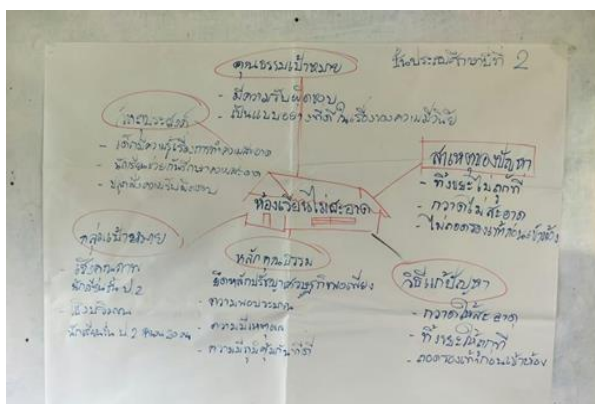 คุณธรรมเป้าหมาย
- มีความรับผิดชอบ
- เป็นแบบอย่างที่ดีในเรื่องของความมีวินัย
ชั้นประถมศึกษาปีที่ 2
วัตถุประสงค์
- เด็กมีความรู้เรื่องการทำความสะอาด
- นักเรียนช่วยกันรักษาความสะอาด
- ปลูกฝังความรับผิดชอบ
สาเหตุของปัญหา
- ทิ้งขยะไม่ถูกที่
- กวาดไม่สะอาด
- ไม่ถอดรองเท้าก่อนเข้าห้อง
ห้องเรียนไม่สะอาด
กลุ่มเป้าหมาย
- เชิงคุณภาพ
นักเรียนชั้น ป.2
- เชิงปริมาณ
นักเรียนชั้น ป.2 จำนวน 20 คน
หลักคุณธรรม
ยึดหลักปรัชญาเศรษฐกิจพอเพียง
- ความพอประมาณ
- ความมีเหตุผล
- ความมีภูมิคุ้มกันที่ดี
วิธีแก้ปัญหา
- กวาดให้สะอาด
- ทิ้งขยะให้ถูกที่
- ถอดรองเท้าก่อนเข้าห้อง